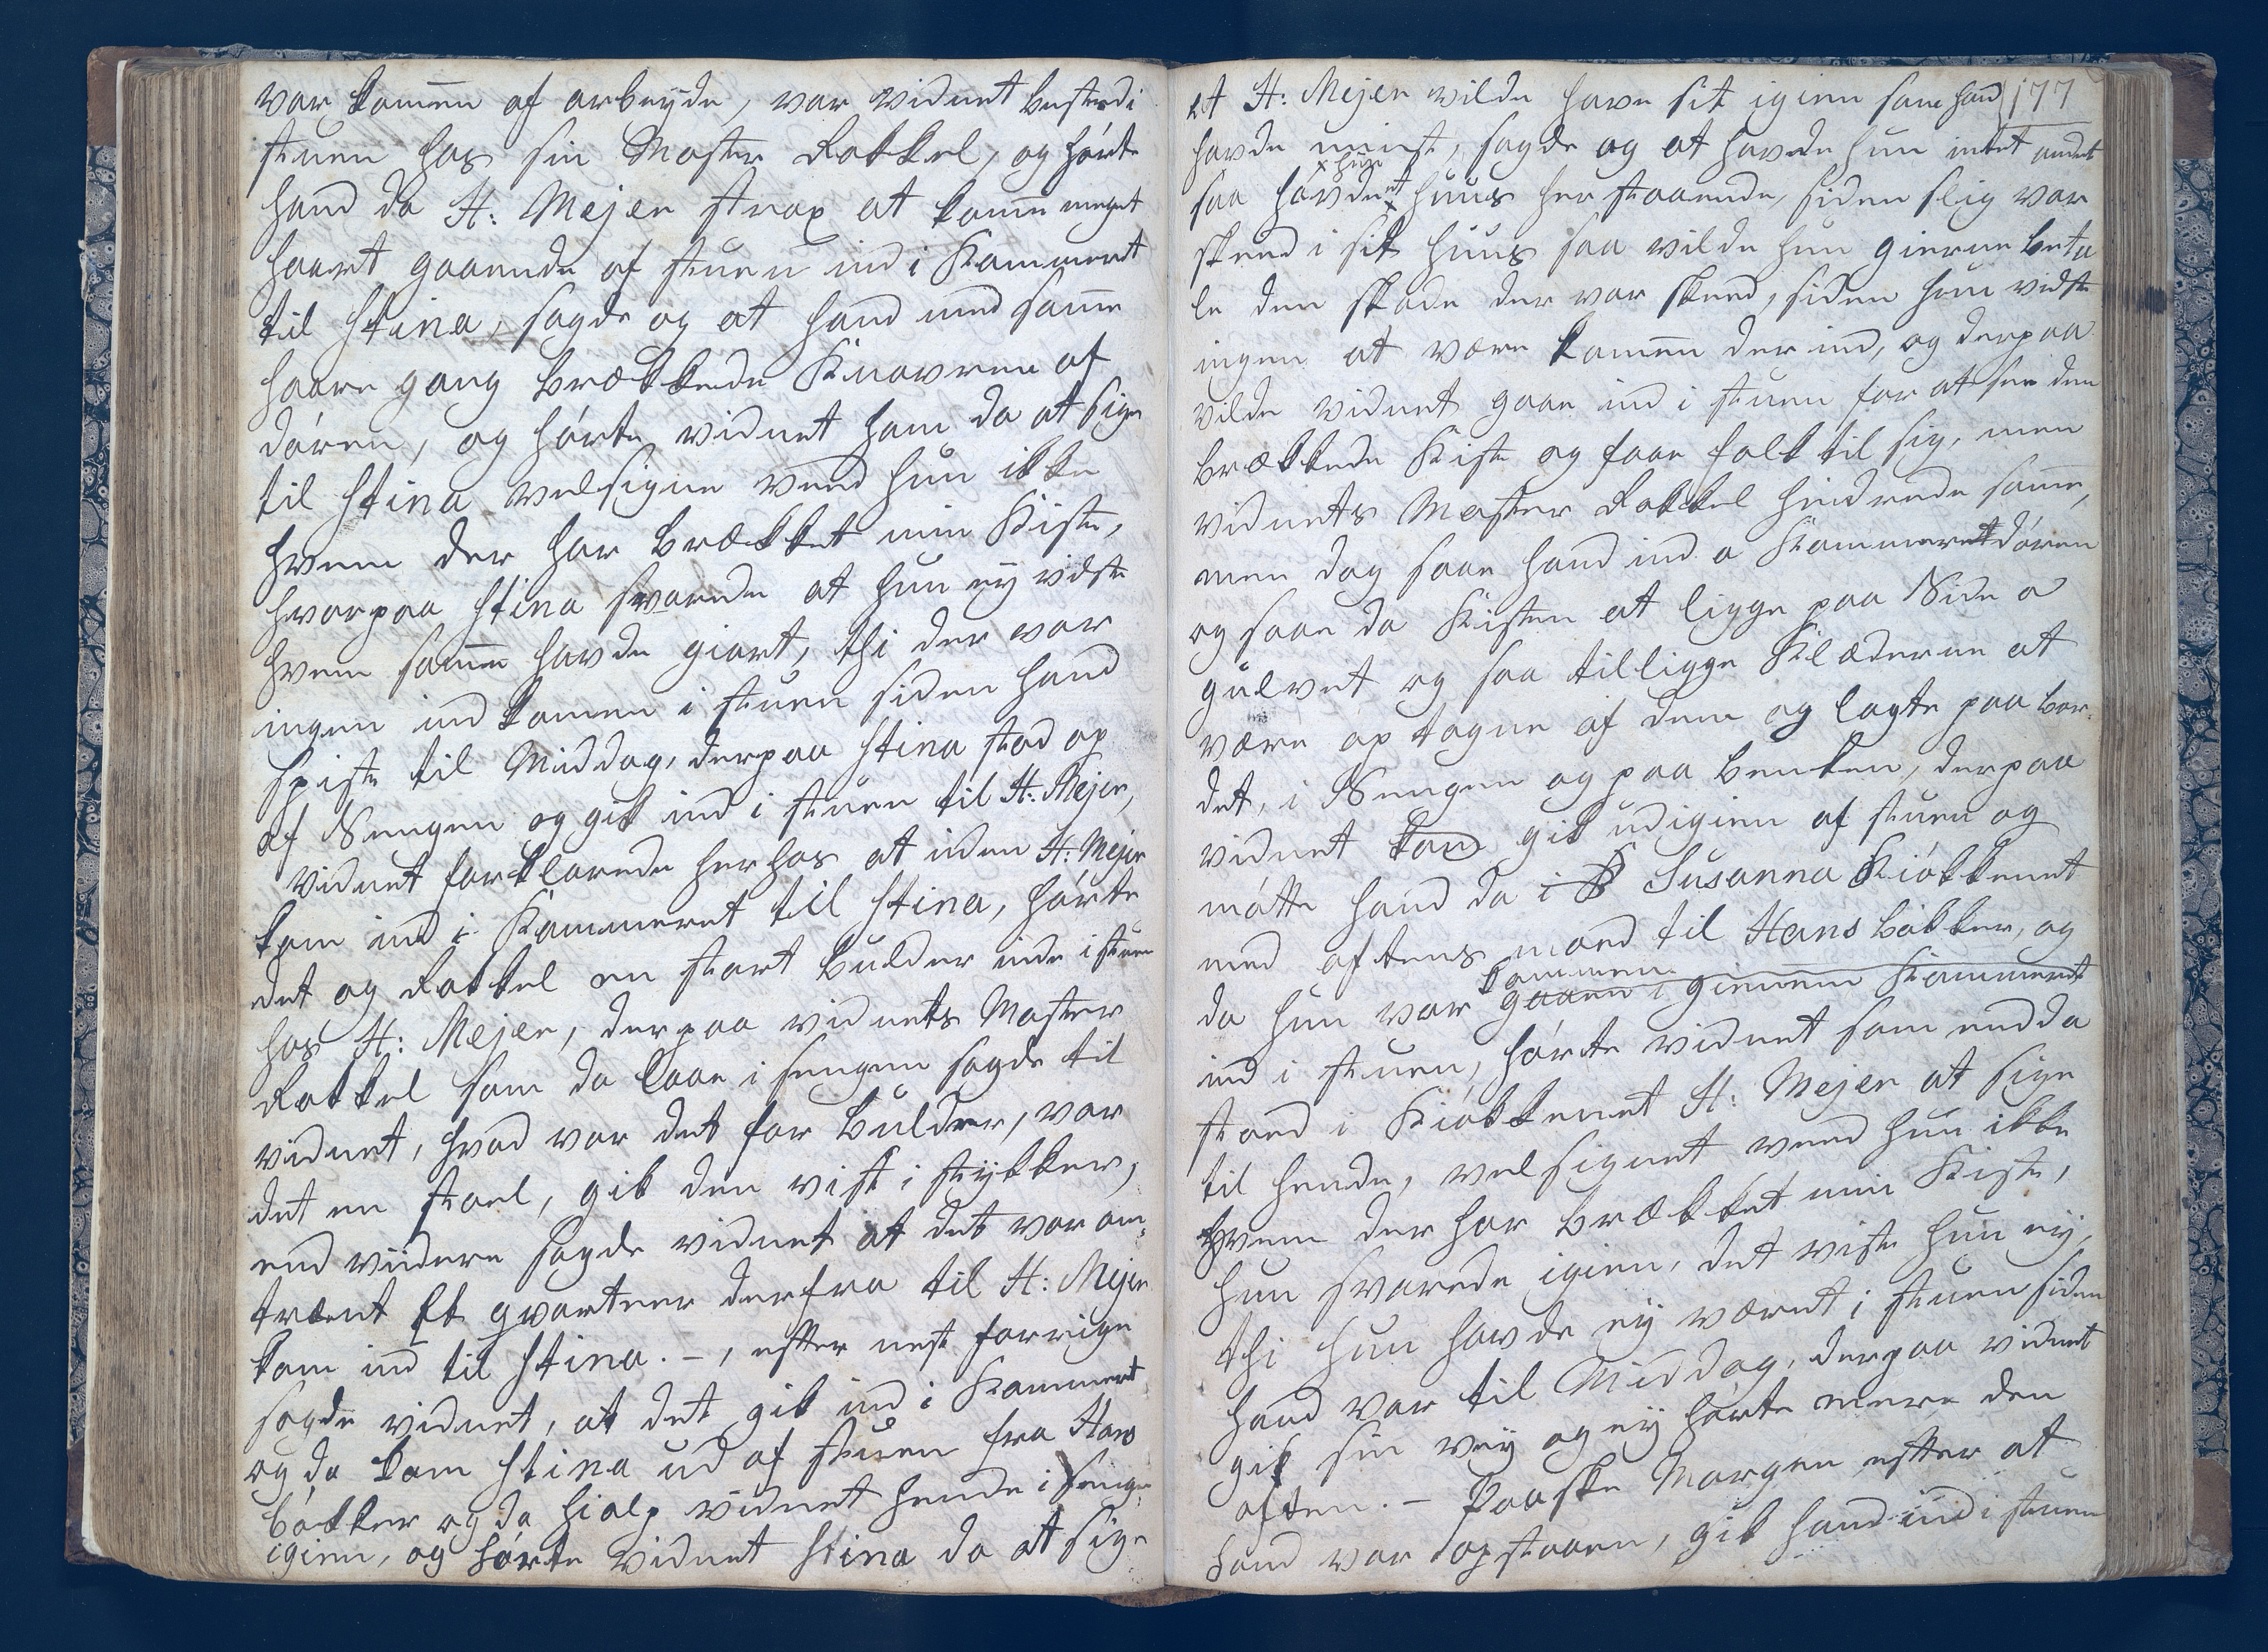 var komen af arbeyde, var vidnet beste di
stuen hos sin Moster Rakkel, og hørte
hand da H: Mejer strax at kome meget
haart gaaende af stuen ind i Kammeret
til Stina, sagde og at hand med same
haare gang brækkede Knavren af
døren, og hørte vidnet ham da at sige
til Stina velsigne veed hun ikke
hvem der har brækket min Kiste,
hvorpaa Stina svarede at hun ey vidste
hvem samme havde giort, thi der var
ingen ind kommen i stuen siden hand
spiste til Middag, derpaa Stina stod op
af Sengen og gik ind i stuen til H: Mejer,
vidnet forklarede herhos at inden H: Mejer
kom ind i Kammeret til Stina, hørte
det og Rakkel en stort bulder inde i stuen
hos H: Mejer, derpaa vidnets Moster
Rakkel som da laae i sengen sagde til
vidnet, hvad var det for bulder, var
det en stoel, gik den vist i stykker,
end viidere sagde vidnet at det var om,
trent Et qvarteer derfra til H: Mejer
kom ind til Stina. –, efter nest forrige
sagde vidnet, at det gik ind i Kammeret
og da kom Stina ud af stuen fra Hans
bøkker og da hialp vidnet hende i senge
igien, og hørte vidnet Stina da at sige
at H: Mejer vilde have sit igien som hand 177
havde mist, sagde og at havde hun intet andet
x hun
saa havde et x huus her staaende, siden slig var
skeed i sit huus saa vilde hun gierne beta
le den skade der var skeed, siden hun vidste
ingen at være kommen der ind, og derpaa
vilde vidnet gaae ind i stuen for at see den
brækkede Kiste og faae folk til sig, men
vidnets Moster Rakkel hindrede same,
men dog saae hand ind a Kammeret døren
og saae da Kisten at ligge paa Side a
gulvet og saa tilligge Klæderne at
være op tagne af dem og lagte paa bor-
det, i Sengen og paa benken, derpaa
vidnet kom gik ud igien af stuen og
møtte hand da i S Susanna Kiøkkenet
med aftens maed til Hans bøkker, og
kommen
da hun var gaaen i giennem Kammeret
ind i stuen, hørte vidnet som endda
stoed i Kiøkkenet H: Mejer at sige
til hende, vel signet veed hun ikke
hvem der har brækket min Kiste,
hun svarede igien, det viste hun ey,
thi hun havde ey været i stuen siden
hand var til Middag, derpaa vidnet
gik sin vey og ey hørte mere den
aften. – Paaske Morgen efter at
hand var opstaaen, gik hand ind i stuen